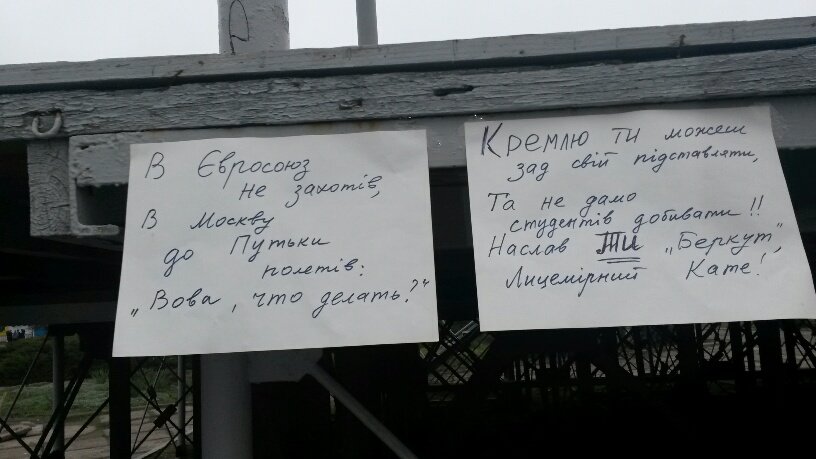 В Євросоюз
не захотів,
В Москву
до Путьки
полетів:
„Вова, что делать?"
Кремлю ти можеш
зад свій підставляти,
Та не дамо
студентів добивати!!
Наслав ТИ „Беркут",
Лицемірний Кате!